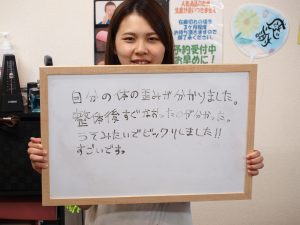 予約受付中
お早めに!
自分の体の歪みが分かりました。
整体後すぐなおったのが分かった。
ってみたいでビックリしました!!
すごいです。